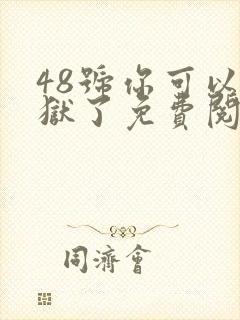 48號你可以
獄了免費閱
同濟會